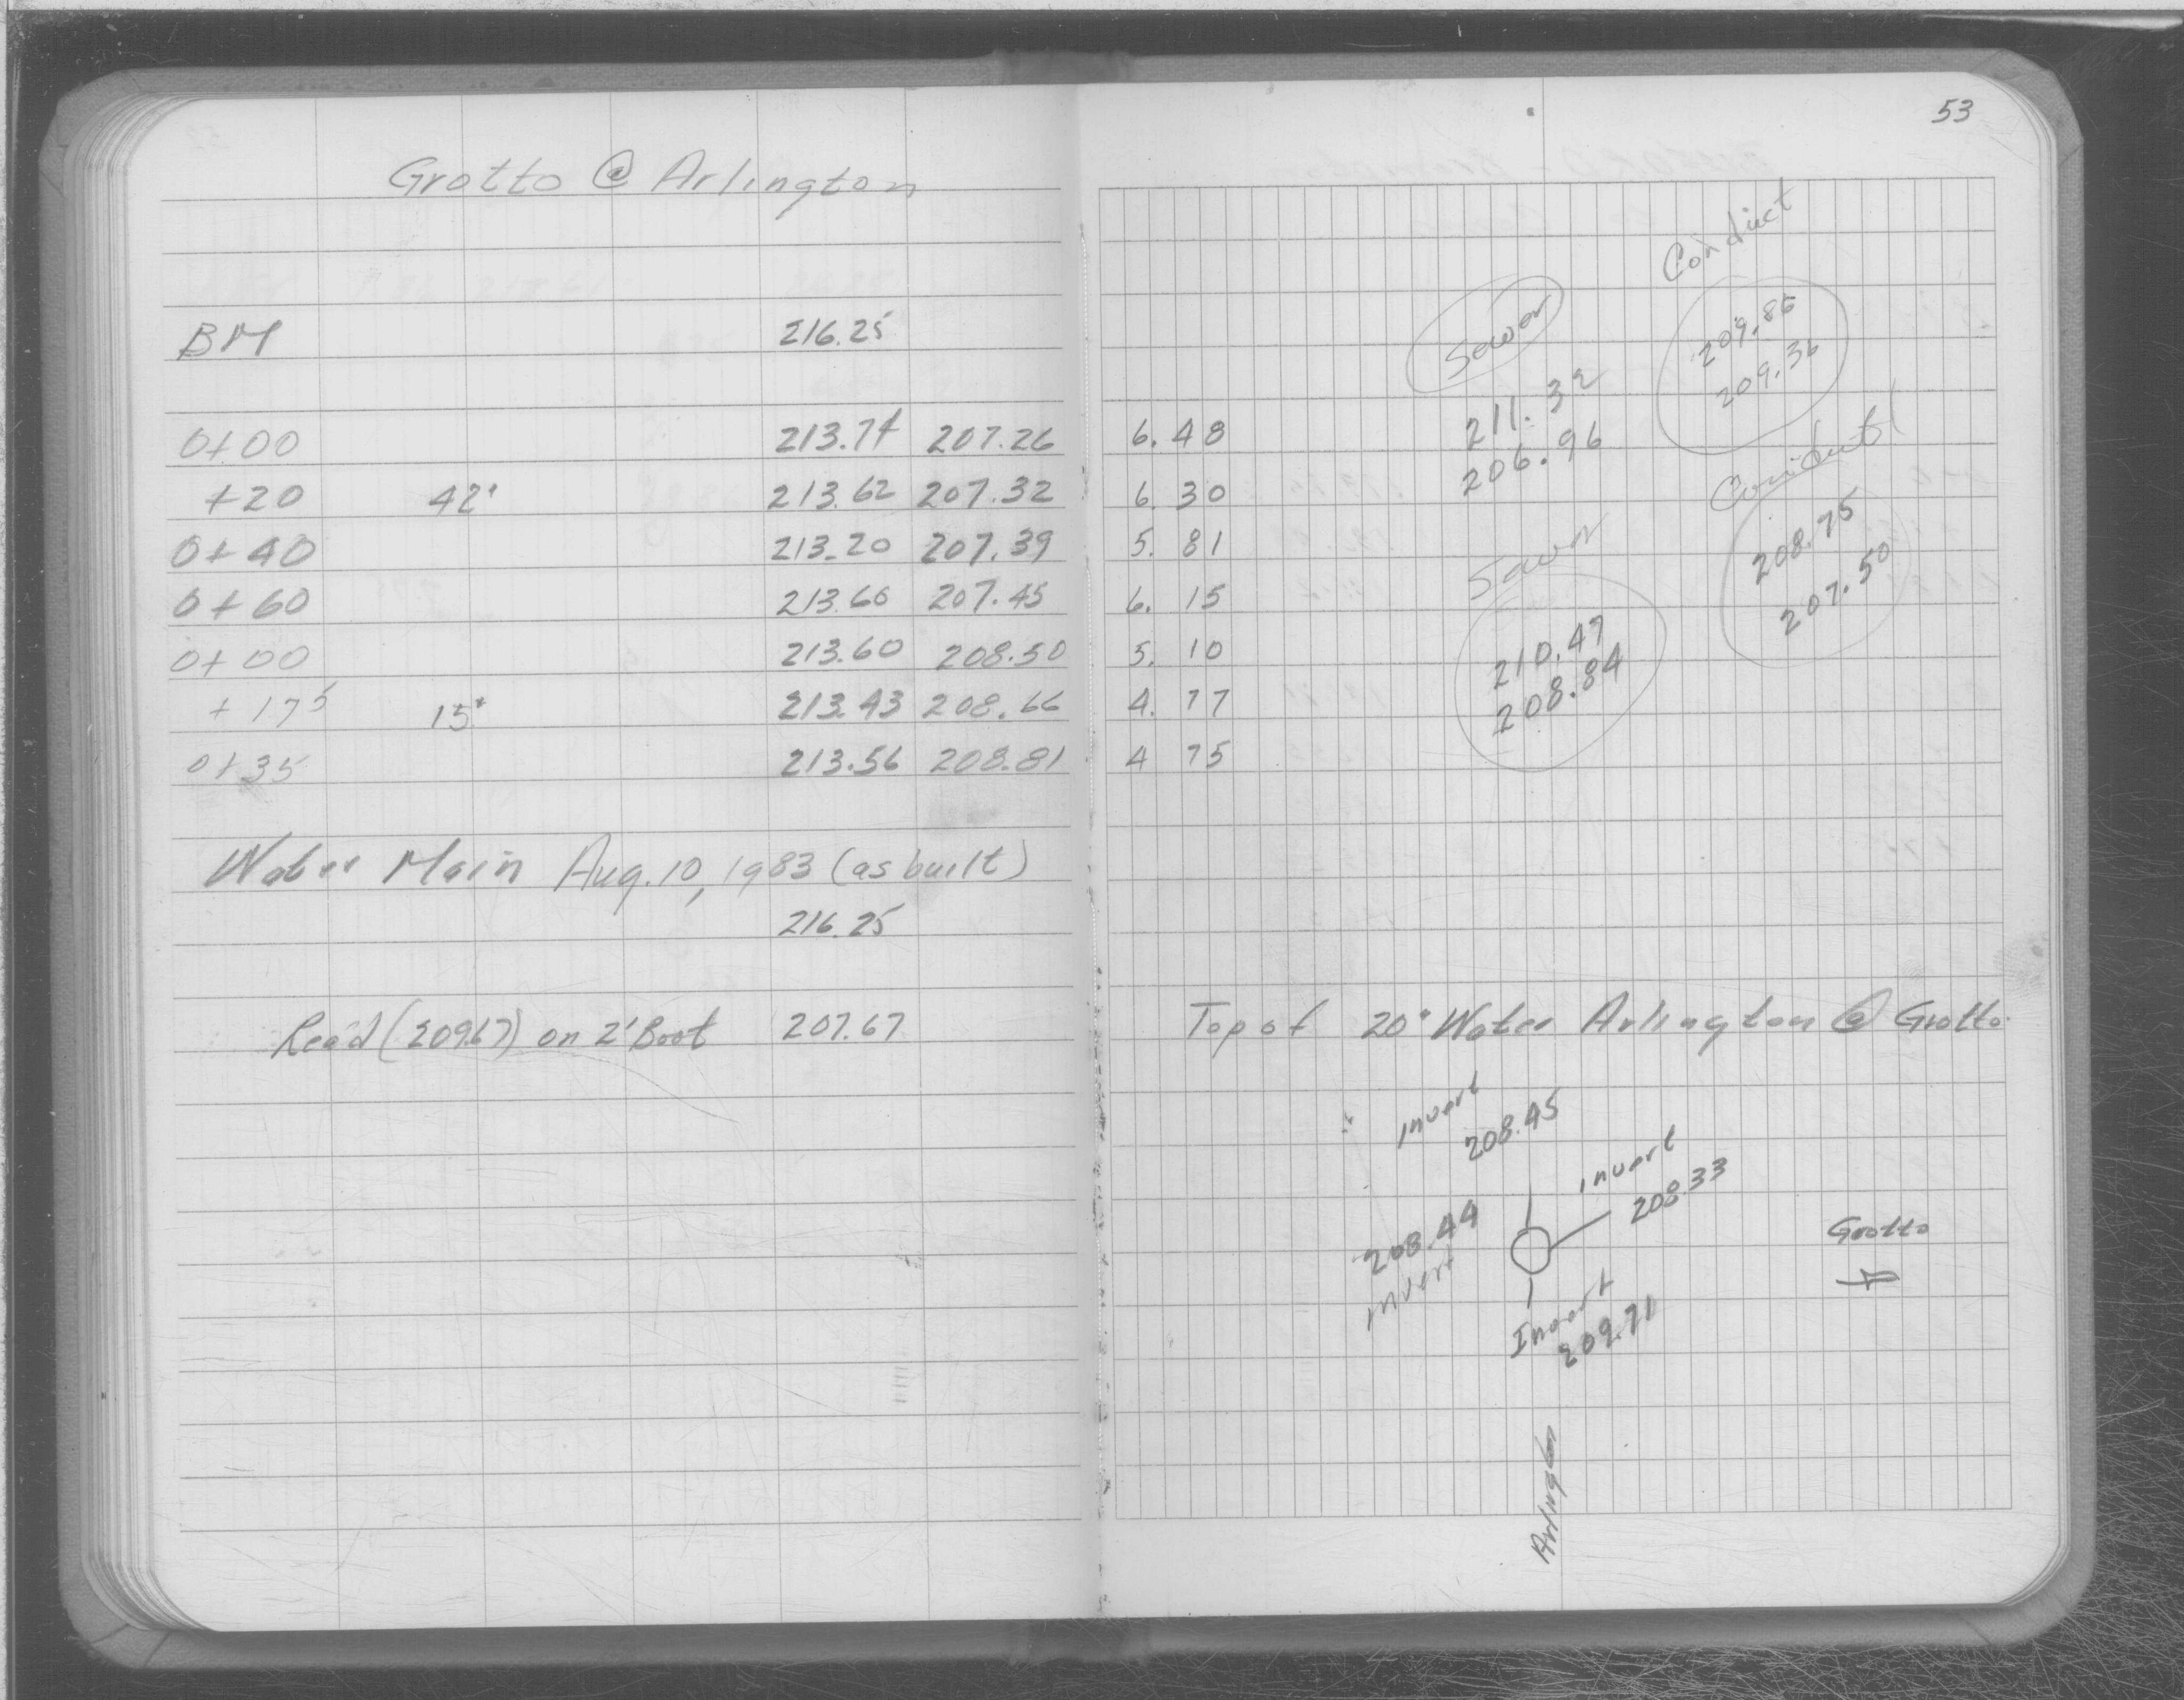 Grotto @ Arlington
BM 216.25
0+00 213.74 207.26
+20 42" 213.62 207.32
0+40 213.20 207.39
0+60 213.60 207.45
0+00 213.60 208.50
+175 15" 213.43 208.66
0+35 213.56 208.81
Water Main Aug. 10, 1983 (as built)
216.25
Read (209.67) on 2' Boot 207.67
53
Conduct
209.86
209.36
Sewer
211.32
206.96
6.48
6.30
5.81
6.15
5.10
4.77
4 75
Conduct
208.75
207.50
Sewer
210.47
208.84
Top of 20" Water Arlington @ Grotto
Invert
208.45
Invert
208.33
208.44
Invert
Grotto
Invert
209.71
Arlington